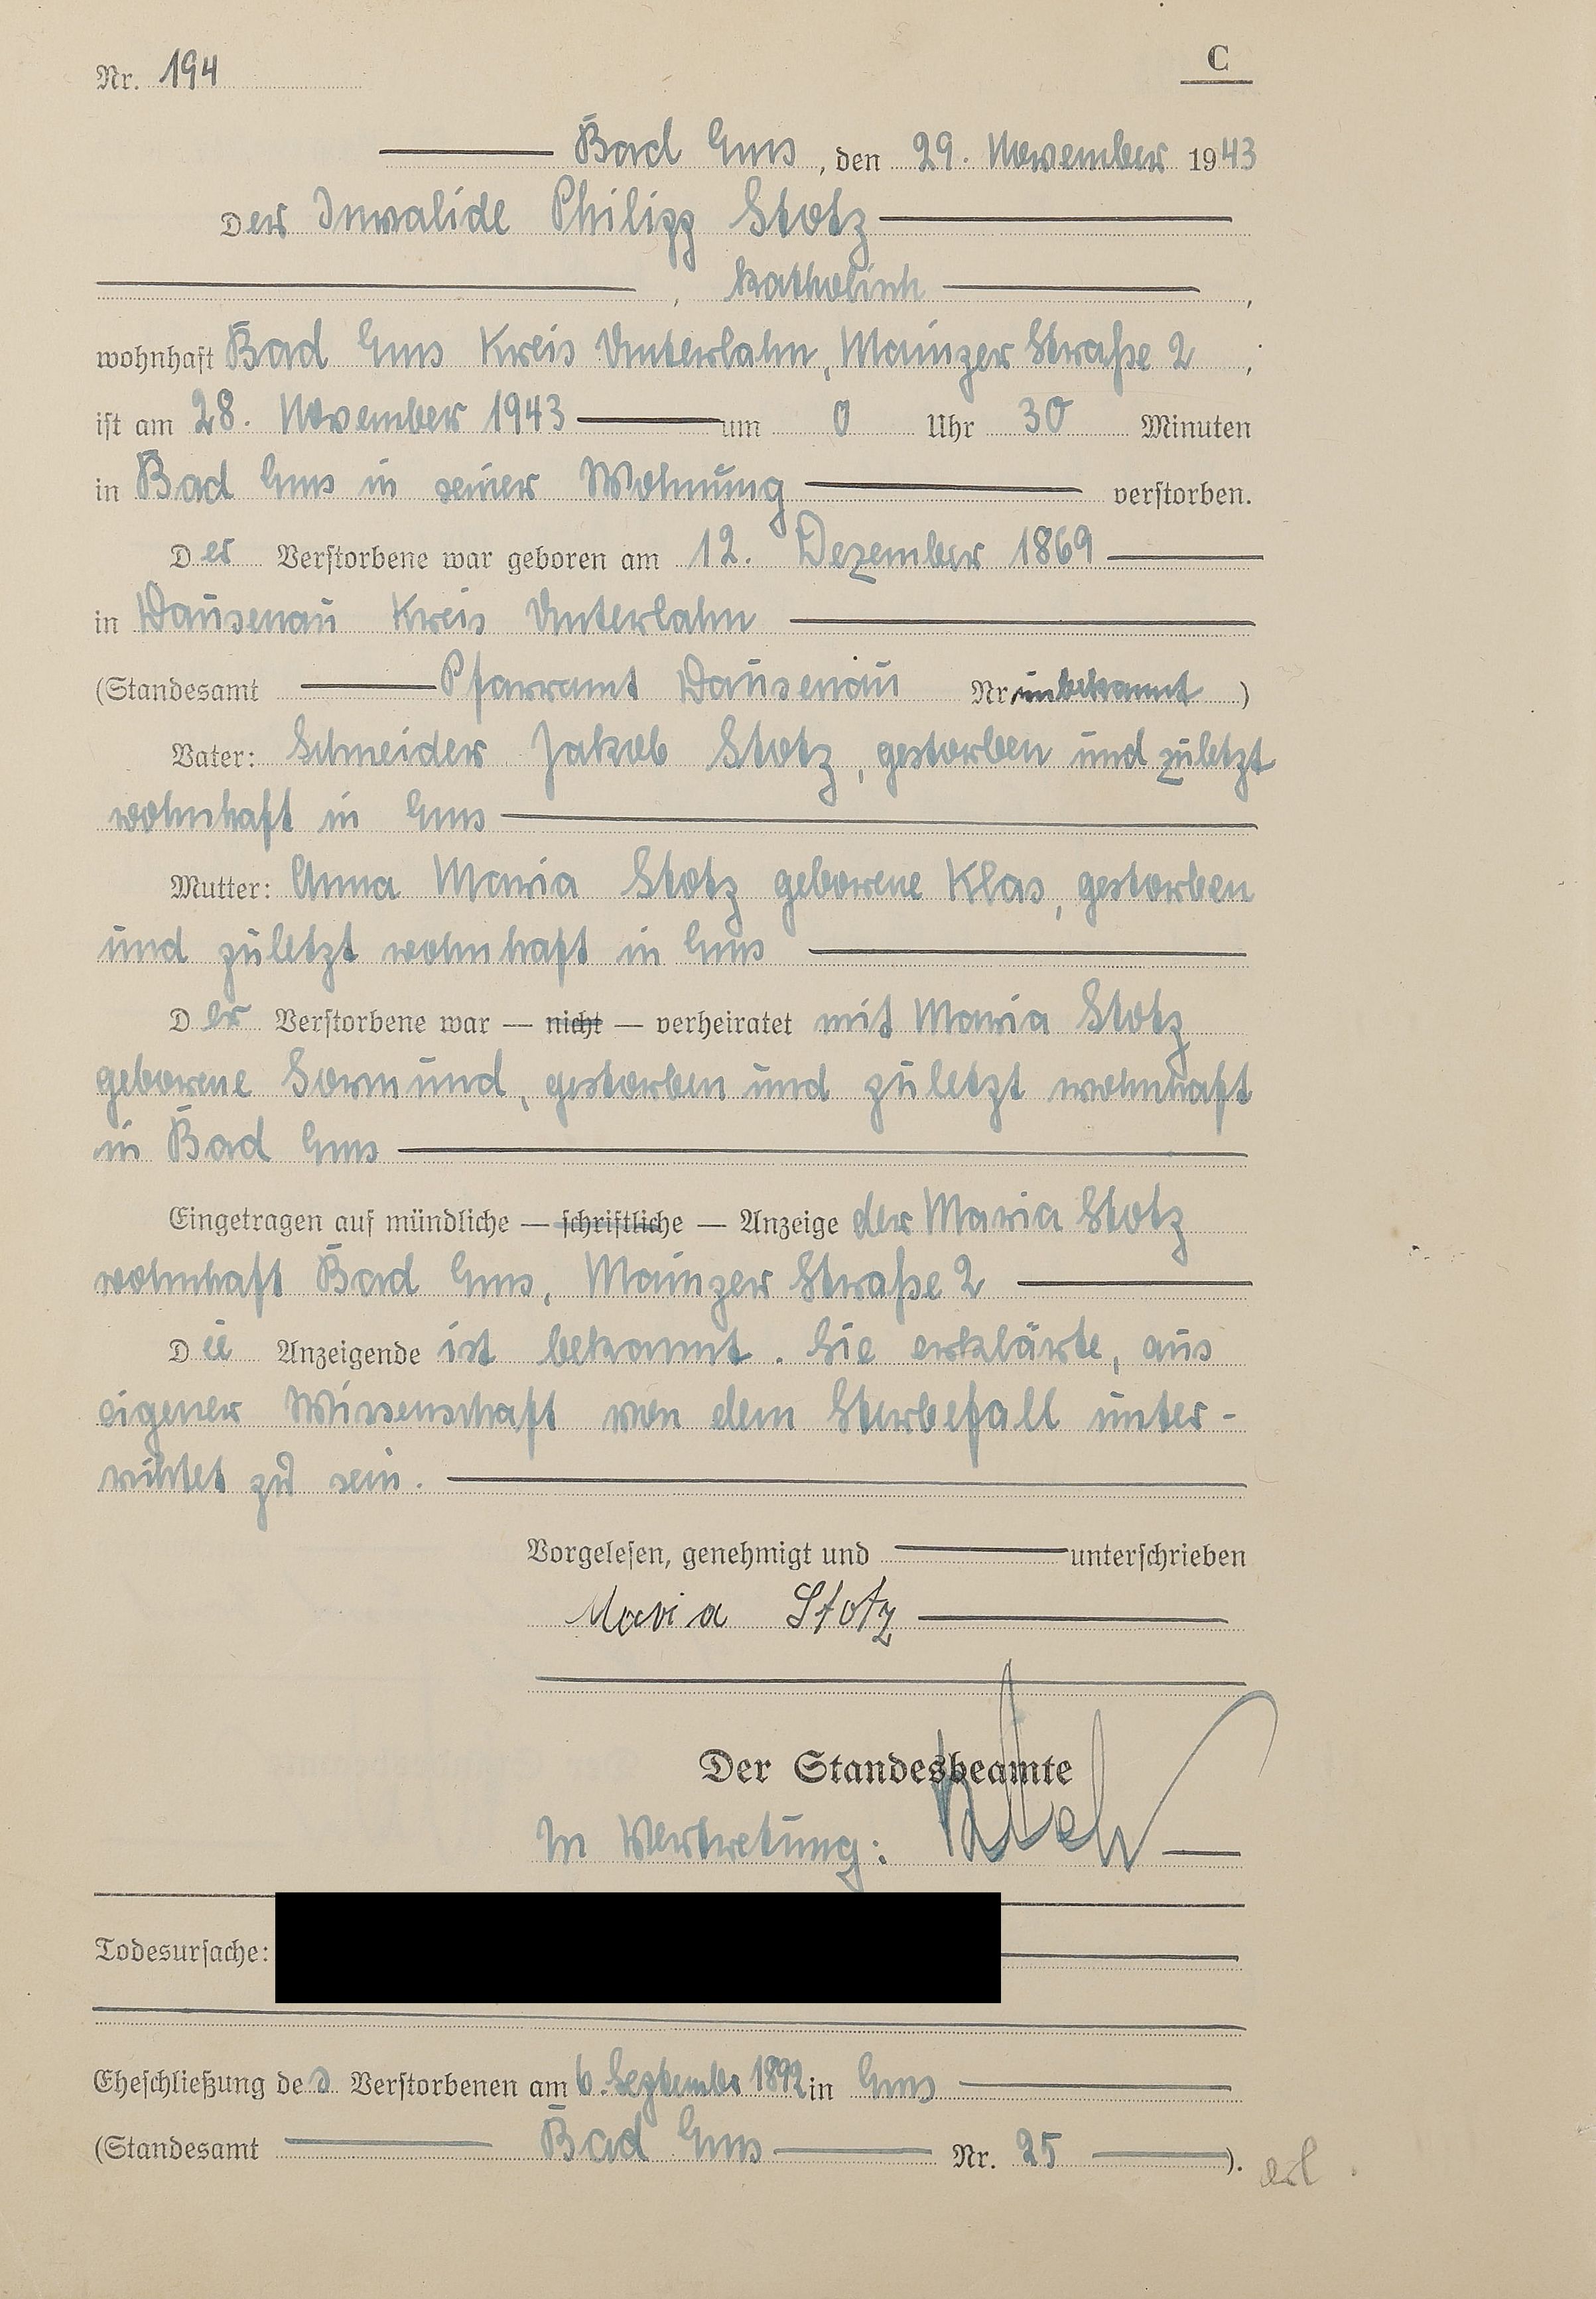 Nr. 194
C
Bad Ems, den 29. November 1943
Der Invalide Philipp Stotz
, katholisch ,
wohnhaft Bad Ems Kreis Unterlahn, Mainzer Straße 2 ,
ist am 28. November 1943 um 0 Uhr 30 Minuten
in Bad Ems in seiner Wohnung verstorben.
Der Verstorbene war geboren am 12. Dezember 1869
in Dausenau Kreis Unterlahn
(Standesamt Pfarramt Dausenau Nr. unbekannt )
Vater: Schneider Jakob Stotz, gestorben und zuletzt
wohnhaft in Ems
Mutter: Anna Maria Stotz geborene Klas, gestorben
und zuletzt wohnhaft in Ems
Der Verstorbene war — nicht — verheiratet mit Maria Stotz
geborene Sormund, gestorben und zuletzt wohnhaft
in Bad Ems
Eingetragen auf mündliche — schriftliche — Anzeige der Maria Stotz
wohnhaft Bad Ems, Mainzer Straße 2
Die Anzeigende ist bekannt. Sie erklärte, aus
eigener Wissenschaft von dem Sterbefall unter-
richtet zu sein.
Vorgelesen, genehmigt und unterschrieben
Maria Stotz
Der Standesbeamte
In Vertretung:
Todesursache:
Eheschließung des Verstorbenen am 6. September 1892 in Ems
(Standesamt Bad Ems Nr. 25 ).
erl.